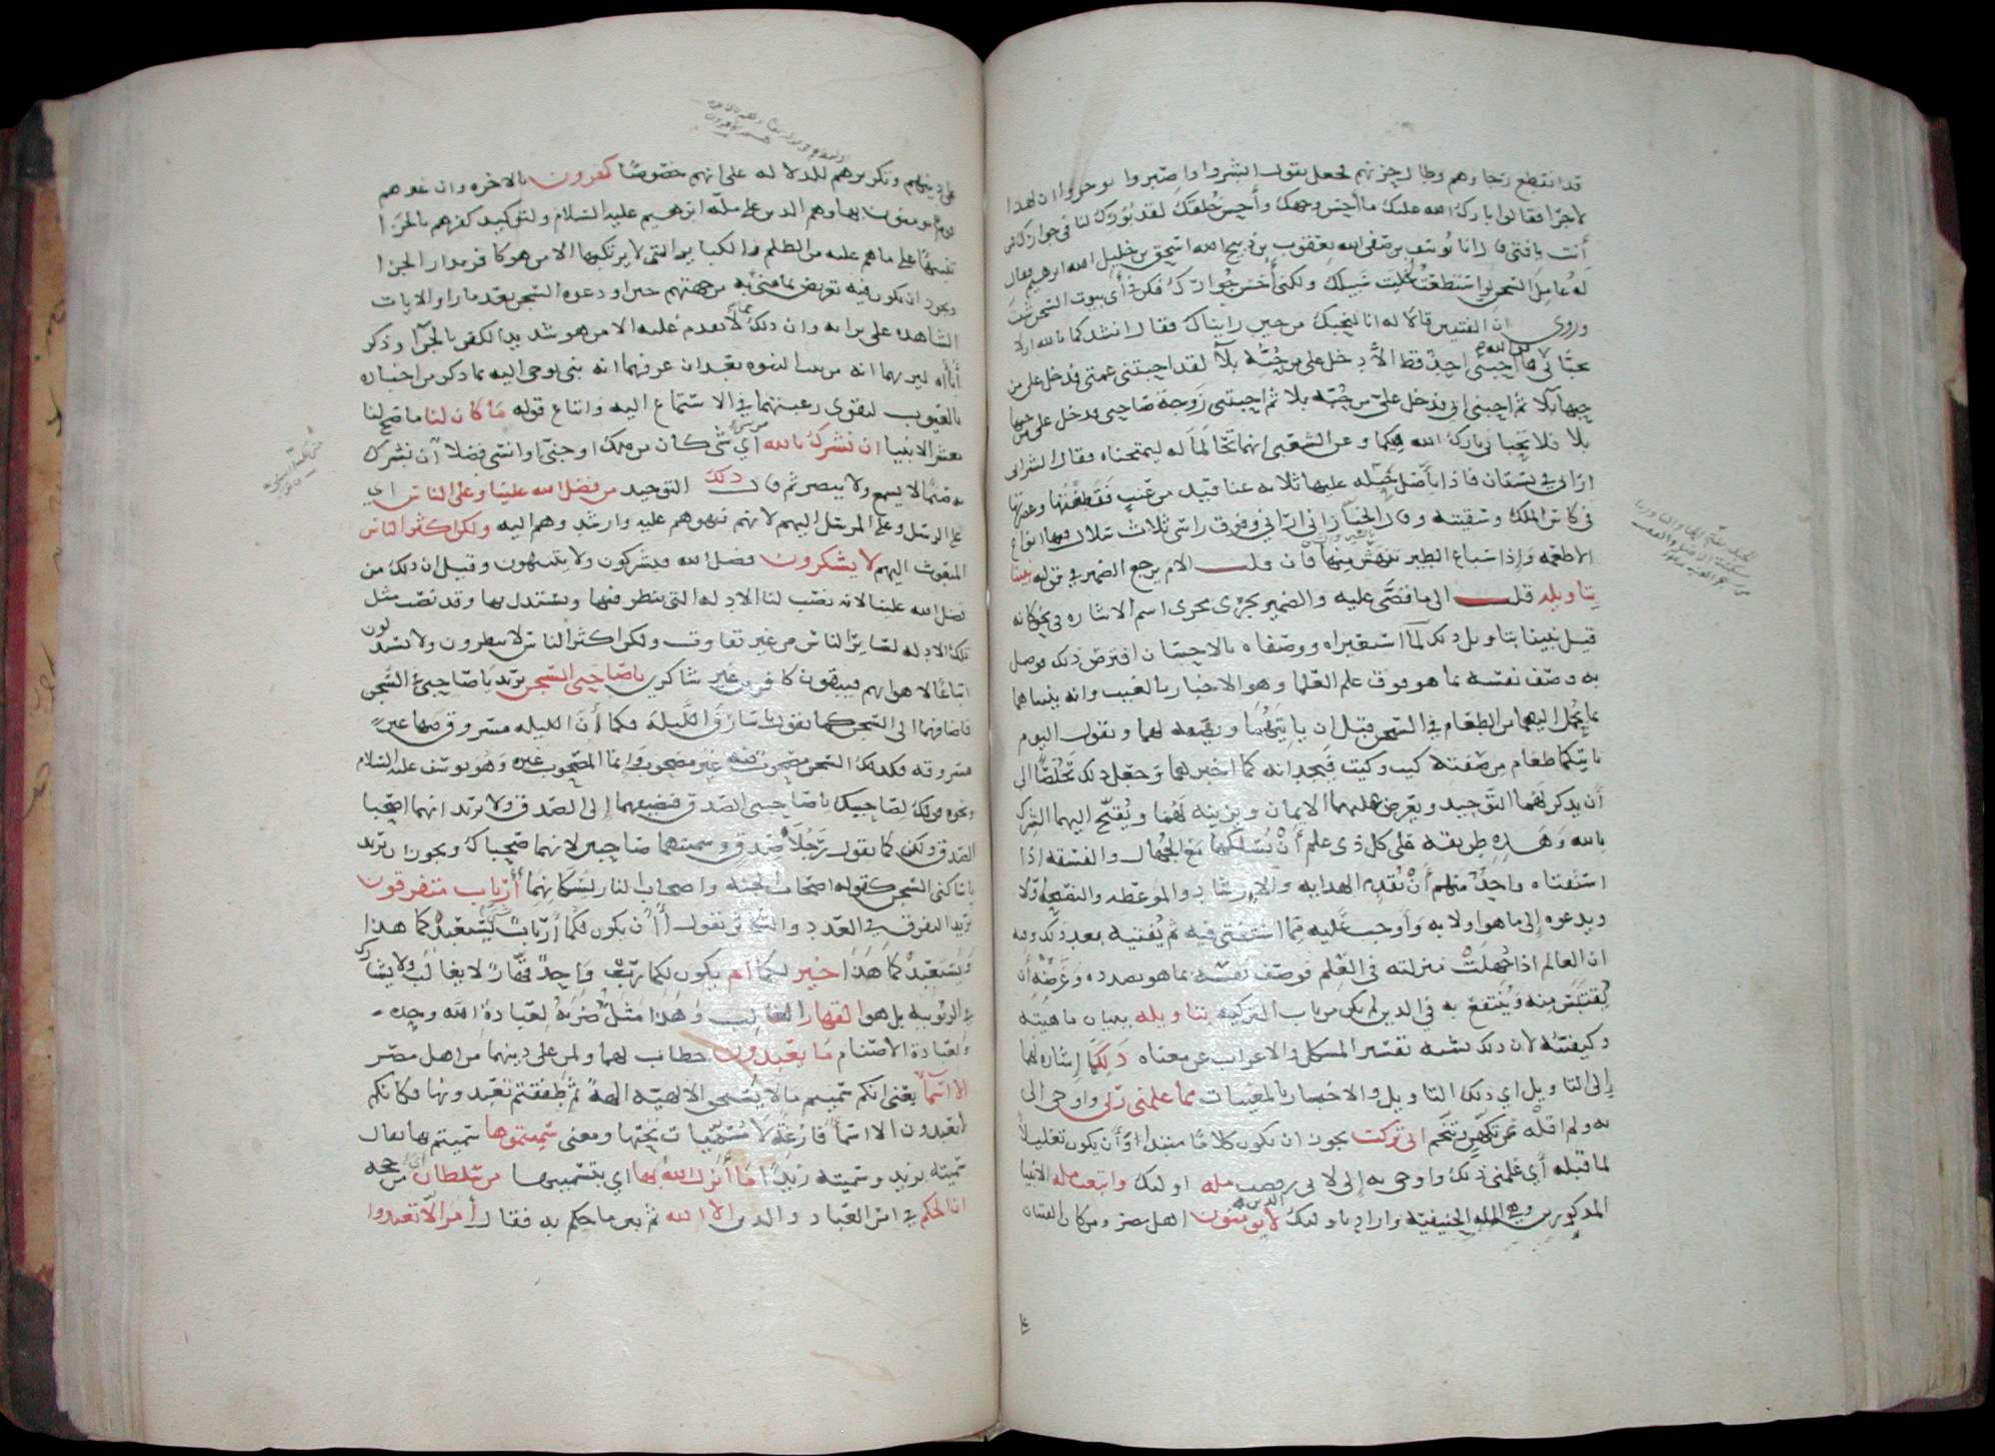 قد انقطع رجاوهم وطال حزنهم فجعل يقول ابشروا واصبروا توجروا ان لهذا
لاجرا فقالوا بارك الله عليك ما أحسن وجهك وأحسن خلقك لقد بورك لنا في جوارك فمن
أنت يا فتى قال انا يوسف بن صفي الله يعقوب بن ذبيح الله اسحق بن خليل الله ابرهيم فقال
له عامل السجن لو استطعت خليت سبيلك ولكني أحسن جوارك فكن في أي بيوت السجن شئت
وروى ان الفتيين قالا له انا لنحبك من حين رايناك فقال انشدكما بالله ان لا
تحباني فوالله ما أحبني احد قط الا دخل علي من حبه بلا لقد احبتني عمتي فدخل علي من
حبها بلا ثم احبني ابي فدخل علي من حبه بلا ثم احبتني زوجة صاحبي فدخل علي من حبها
بلا فلا تحباني بارك الله فيكما وعن الشعبي انهما تحالما له ليمتحناه فقال الشرابي
اراني في بستان فاذا بأصل حبله عليها ثلاثه عناقيد من عنب فقطفتها وعصرتها
في كاس الملك وسقيته وقال الخباز اني اراني وفوق راسي ثلاث سلال فيها انواع
الاطعمه وإذا سباع الطير تنهش منها فان قلت الام يرجع الضمير في قوله نبينا
بتاويله قلت الى ما قصا عليه والضمير يجرى مجرى اسم الاشاره في نحو كانه
قيل نبينا بتاويل ذلك لما استعبراه ووصفاه بالاحسان افترض ذلك فوصل
به وصف نفسه بما هو فوق علم العلما وهو الاخبار بالغيب وانه ينبيهما
بما يحمل اليهما من الطعام في السجن قبل ان ياتيهما ويصفه لهما ويقول اليوم
ياتيكما طعام من صفته كيت وكيت فيجدانه كما اخبرهما وجعل ذلك تخلصا الى
أن يذكر لهما التوحيد ويعرض عليهما الايمان ويزينه لهما ويقبح اليهما الشرك
بالله وهذه طريقة على كل ذى علم أن يسلكها مع الجهال والفسقه اذا
استفتاه واحد منهم أن يقدم الهدايه والارشاد والموعظه والنصيحه أولا
ويدعوه إلى ما هو اولا به وأوجب عليه مما استفتى فيه ثم يفتيه بعد ذلك وفيه
ان العالم اذا جهلت منزلته في العلم فوصف نفسه بما هو بصدده وغرضه أن
يقتبس منه وينتفع به في الدين لم يكن من باب التزكيه بتاويله ببيان ماهيته
وكيفيته لان ذلك يشبه تفسير المشكل والاعراب عن معناه ذلكما إشاره لهما
إلى التاويل اي ذلك التاويل والاخبار بالمغيبات مما علمني ربي واوحى الى
به ولم اقله عن تكهن وتنجم اني تركت يجوز ان يكون كلاما مبتدا وأن يكون تعليلا
لما قبله أي علمني ذلك واوحى به إلي لاني رفضت مله اوليك واتبعت مله الانبيا
المذكورين وهي المله الحنيفيه واراد باوليك الذين لا يومنون اهل مصر ومن كان الفتيان
على دينهم وتكريرهم للدلاله على انهم خصوصا كفرون بالاخره وان غيرهم
قوم يومنون بها وهم الذين على مله ابرهيم عليه السلام ولتوكيد كفرهم بالجزا
تنبيها على ما هم عليه من الظلم والكبايرا التي لا يرتكبها الا من هو كافر بدار الجزا
ويجوز ان يكون فيه تعريض بما مني به من جهتهم حين اودعوه السجن بعد ما راوا الايات
الشاهده على براته وان ذلك مما لا يقدم عليه الا من هو شديد الكفر بالجزآ وذكر
أباأه ليريهما انه من بيت النبوه بعد ان عرفهما انه نبي يوحى اليه بما ذكر من اخباره
بالغيوب ليقوى رغبتهما في الاستماع اليه واتباع قوله ما كان لنا ما صح لنا
معشر الانبيا ان نشرك بالله أي شي كان من ملك او جني او انسي فضلا أن نشرك
به صنما لا يسمع ولا يبصر ثم قال ذلك التوحيد من فضل الله علينا وعلى الناس اي
على الرسل وعلى المرسل اليهم لانهم نبهوهم عليه وارشدوهم اليه ولكن اكثر الناس
المبعوث اليهم لا يشكرون فضل الله فيشركون ولا يتنبهون وقيل ان ذلك من
فضل الله علينا لانه نصب لنا الادله التي ينظر فيها ويستدل بها وقد نصب مثل
تلك الادله لساير الناس من غير تفاوت ولكن اكثر الناس لا ينظرون ولا يستدلون
اتباعا لاهوايهم فيبقون كافرين غير شاكرين ياصاحبي السجن يريد ياصاحبي في السجن
فاضافهما الى السجن كما تقول يا سارق الليلة فكما أن الليله مسروق فيها غير
مسروقه فكذلك السجن مصحوب فيه غير مصحوب وانما المصحوب غيره وهو يوسف عليه السلام
ونحوه قولك لصاحبيك ياصاحبي الصدق فتضيفهما إلى الصدق ولا تريد انهما صحبا
الصدق ولكن كما تقول رجلا صدق وسميتهما صاحبين لانهما صحباك ويجوز ان تريد
ياساكني السجن كقوله اصحاب الجنه واصحاب النار لسكانهما أأرباب متفرقون
يريد التفرق في العدد والتكاثر تقول أأن يكون لكما أرباب شتى يستعبدكما هذا
ويستعبدكما هذا خير لكما ام يكون لكما رب واحد قهار لا يغالب ولا يشارك
في الربوبيه بل هو القهار الغالب وهذا مثل ضربه لعبادة الله وحده
ولعبادة الاصنام ما تعبدون خطاب لهما ولمن على دينهما من اهل مصر
الا اسمآ يعنى انكم سميتم ما لا يستحق الالهيه الهه ثم طفقتم تعبدونها فكانكم
لا تعبدون الا اسمآ فارغه لا مسميات تحتها ومعنى سميتموها سميتم بها يقال
سميته بزيد وسميته زيدا ما أنزل الله بها اي بتسميتها من سلطان من حجه
ان الحكم في امر العباد والدين الا لله ثم بين ما حكم به فقال أمر الا تعبدوا